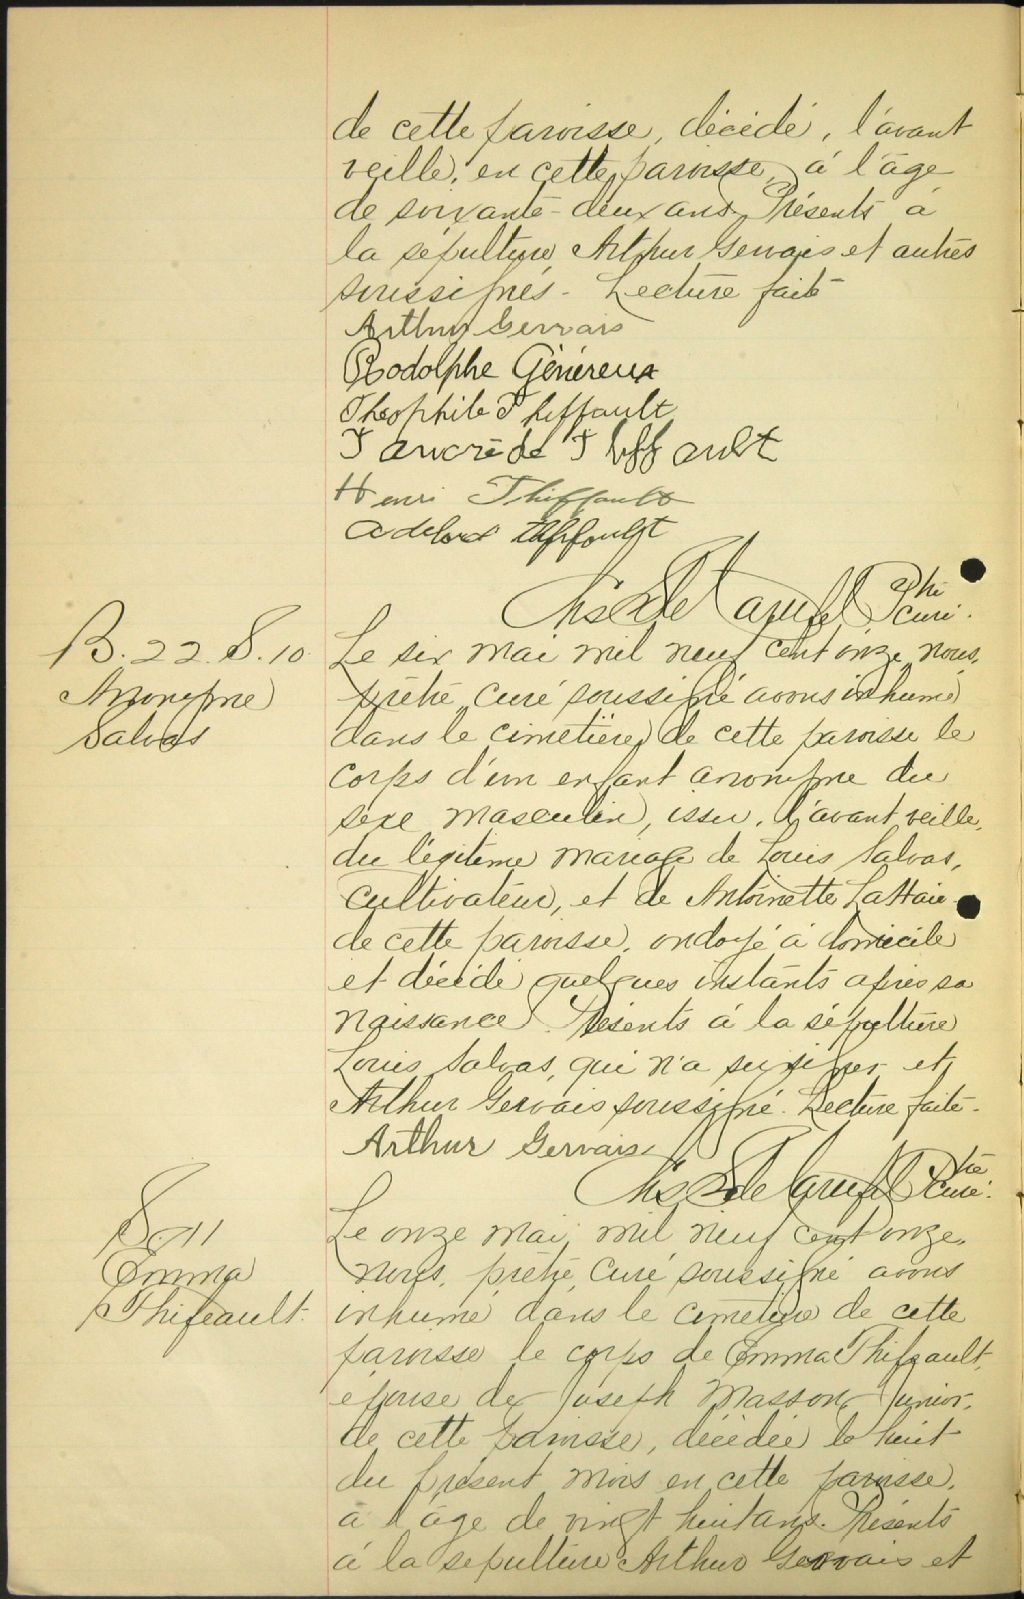 de cette paroisse, décédé, l'avant
veille, en cette paroisse, à l'âge
de soixante-deux ans. Présents à
la sépulture Arthur Gervais et autres
soussignés - Lecture faite
Arthur Gervais
Rodolphe Généreux
Théophile Thiffault
Tancrède Thiffault
Henri Thiffault
Adélard Thiffault
Ptre
curé.
B. 22. S. 10
Anonyme
Salvas
Le six mai mil neuf cent onze, nous,
prêtre, curé soussigné avons inhumé
dans le cimetière de cette paroisse le
corps d'un enfant anonyme du
sexe masculin, issu, l'avant veille,
du légitime mariage de Louis Salvas,
cultivateur, et de Antoinette LaHaie
de cette paroisse, ondoyé à domicile
et décédé quelques instants après sa
naissance. Présents à la sépulture
Louis Salvas, qui n'a su signer et
Arthur Gervais soussigné. Lecture faite -
Arthur Gervais
Ptre
curé.
S. 11
Emma
Thifeault.
Le onze mai, mil neuf cent onze,
nous, prêtre, curé soussigné avons
inhumé dans le cimetière de cette
paroisse le corps de Emma Thifeault,
épouse de Joseph Masson, junior,
de cette paroisse, décédée le huit
du présent mois en cette paroisse,
à l'âge de vingt huit ans. Présents
à la sépulture Arthur Gervais et